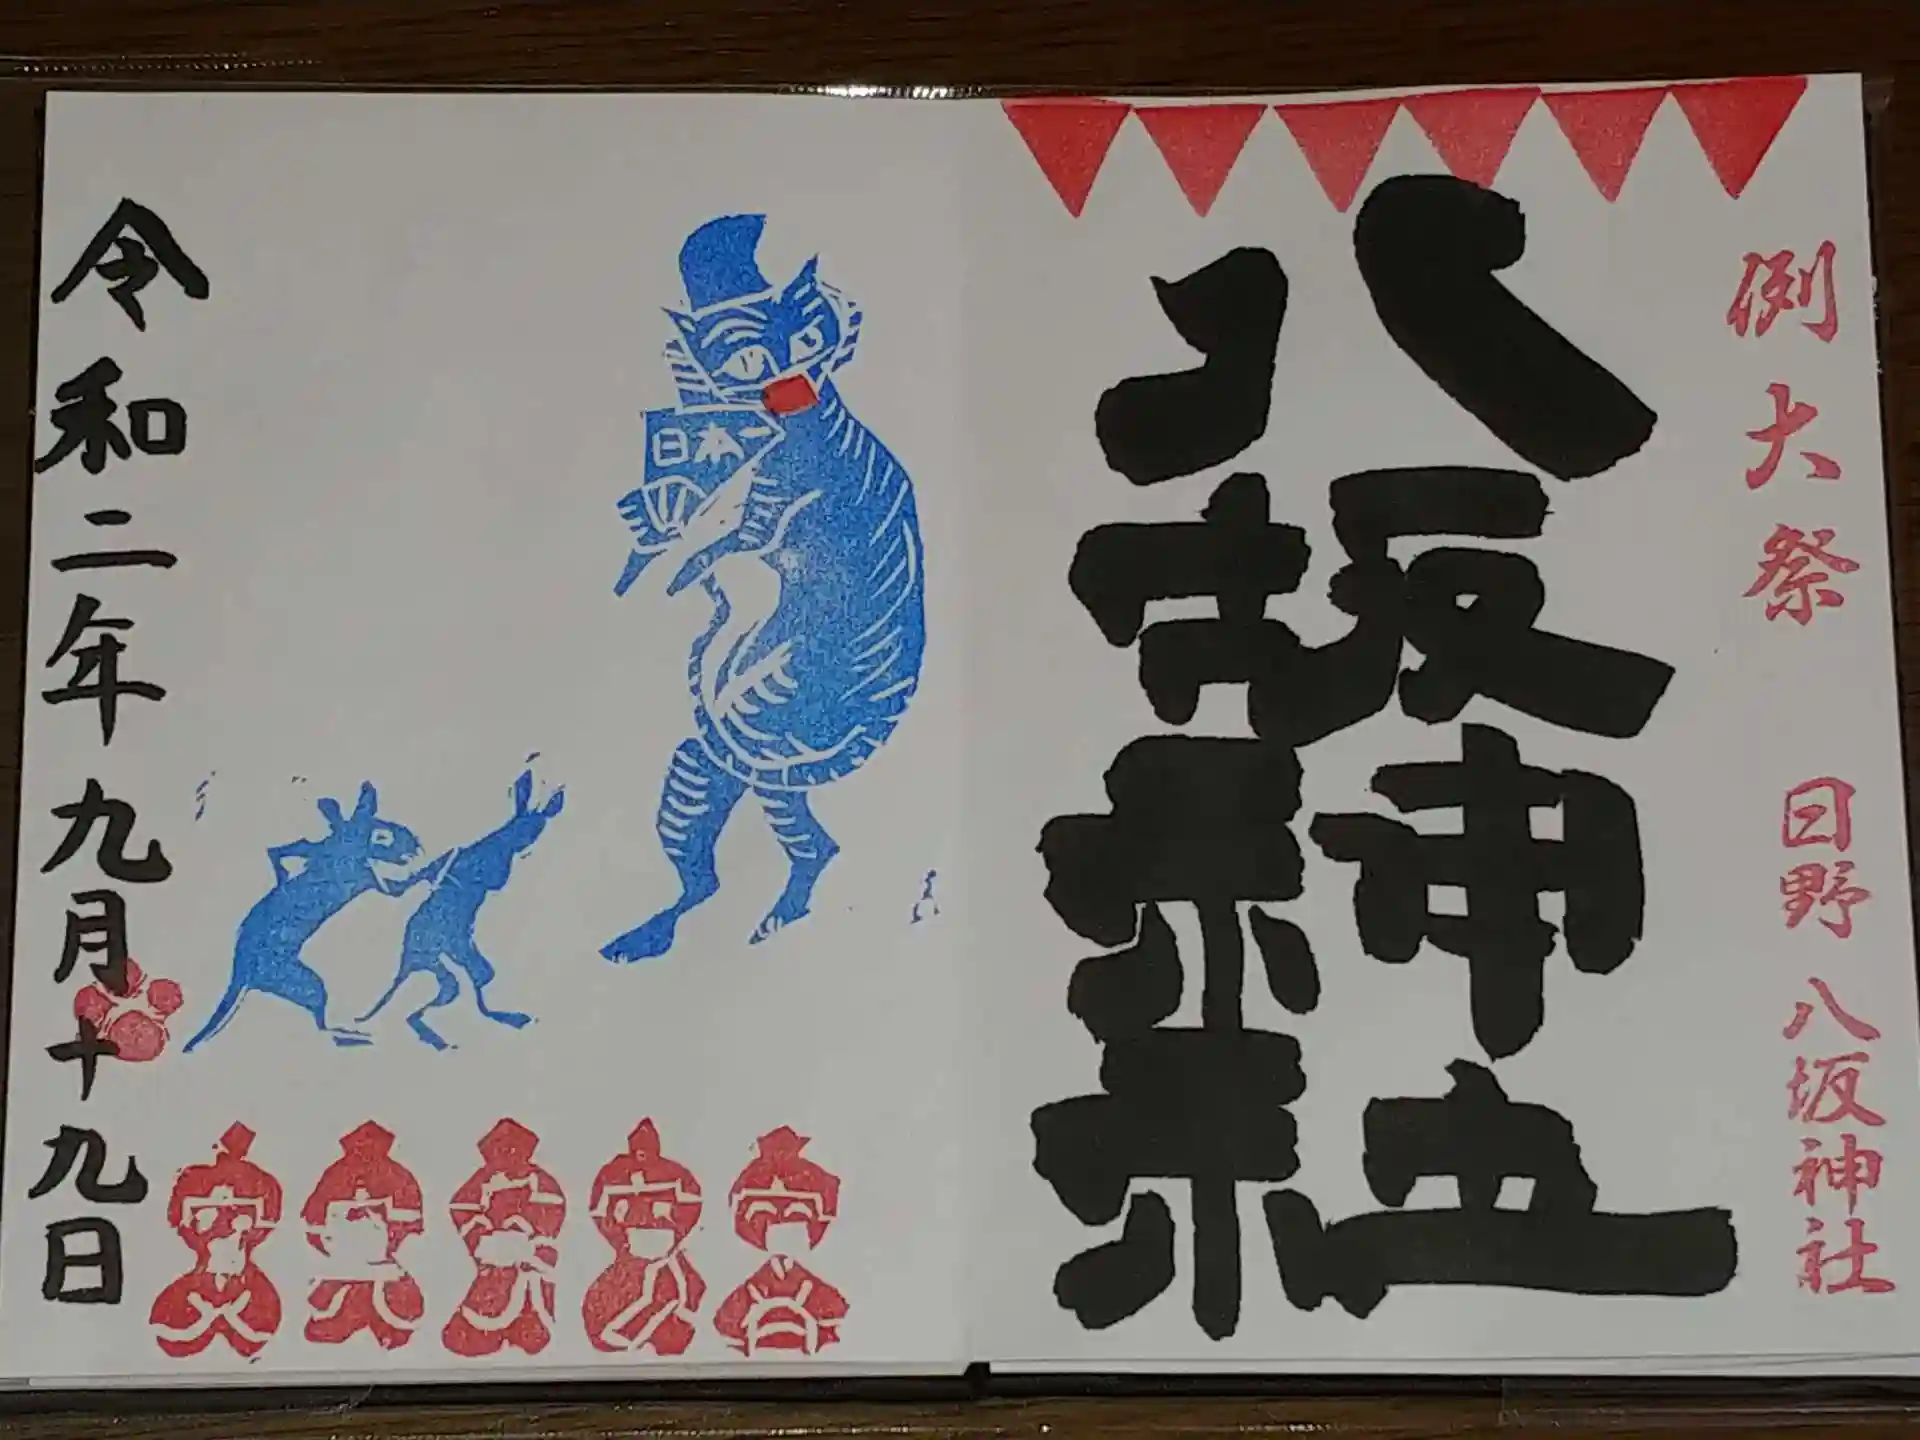 例大祭 日野八坂神社
八坂神社
日本一
令和二年九月十九日